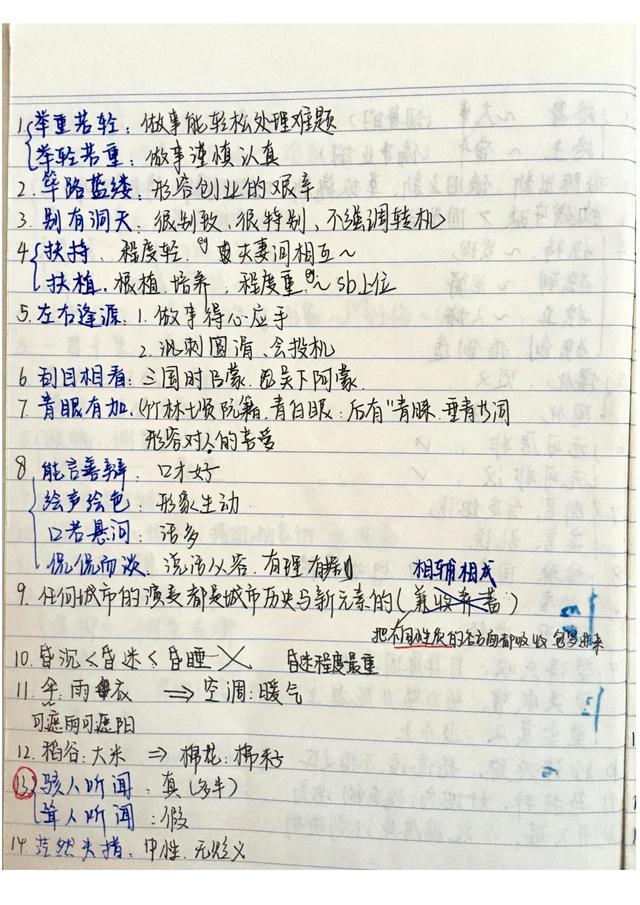 1. 举重若轻：做事能轻松处理难题
举轻若重：做事谨慎认真
2. 筚路蓝缕：形容创业的艰辛
3. 别有洞天：很别致、很特别、不强调转机
4. 扶持．程度轻．夫妻间相互～
扶植．根植．培养，程度重．～sb上位
5. 左右逢源：1. 做事得心应手
2. 讽刺圆滑、会投机
6. 刮目相看：三国时吕蒙．吴下阿蒙．
7. 青眼有加．竹林七贤阮籍．青白眼：后有"青睐．垂青"词
形容对人的喜爱
8 能言善辩：口才好
绘声绘色：形象生动
口若悬河：话多
侃侃而谈．说话从容．有理有
相辅相成
9. 任何城市的演变都是城市历史与新元素的(兼收并蓄)
把不同性质的各方面都吸收包罗进来
10. 昏沉<昏迷<昏睡 昏迷程度最重
11. 伞：雨衣 ⇒ 空调：暖气
可遮雨可遮阳
12. 稻谷：大米 ⇒ 棉花：棉籽
13. 骇人听闻：真(多半)
耸人听闻：假
14. 茫然失措．中性．无贬义